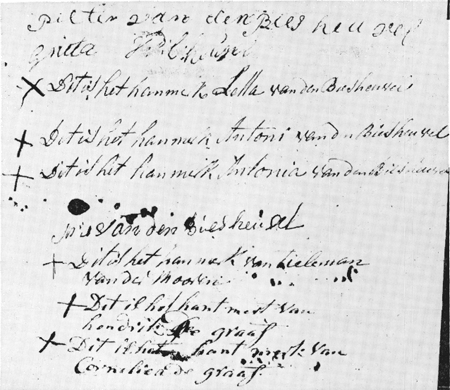 pieter van den Bies heu vel
gritta
X Dit is het hanmerk Lella van den Biesheuvel
+ Dit is het hanmerk Antoni van dn Biesheuvel
+ Dit is het hanmerk Antonia van den Biesheuvel
van den Biesheuvel
+ Dit is het hanmerk van Tieleman
van der
+ Dit is het hant merk van
hendrik De graaf
+ Dit is het hant merk van
Cornelies de graaf